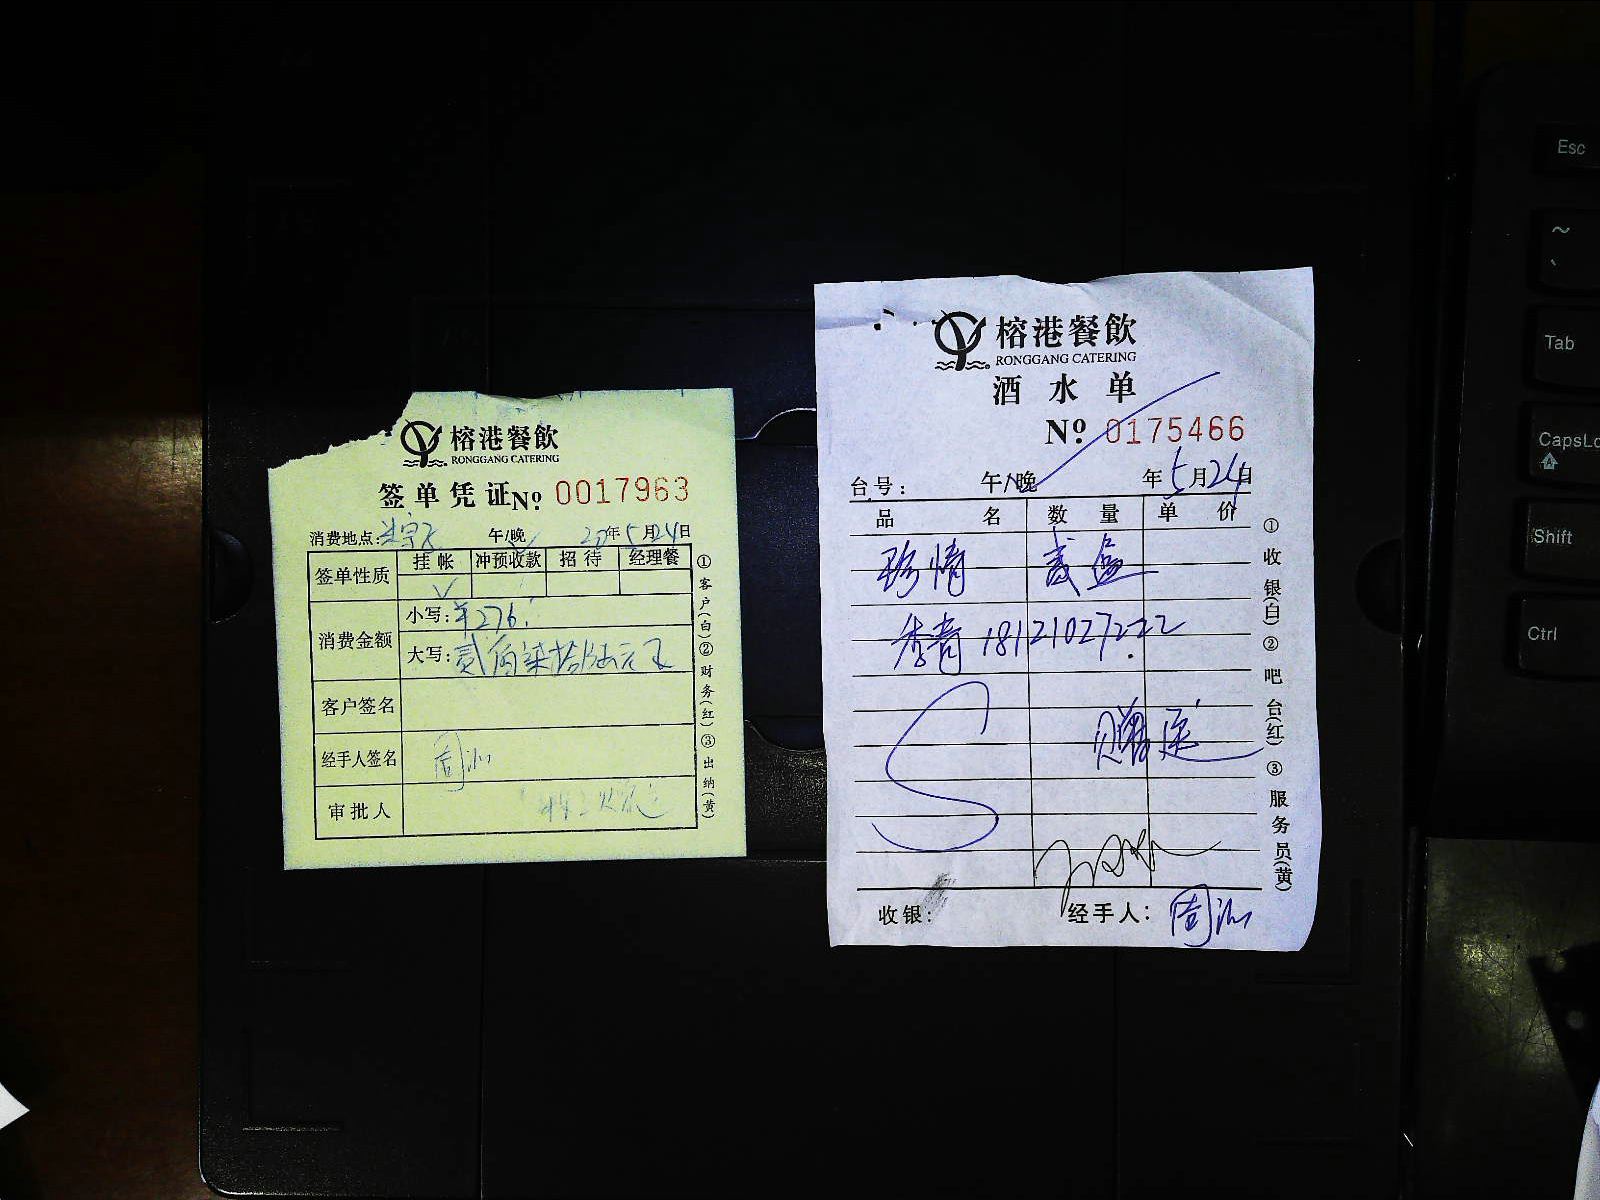 榕港餐飲
RONGGANG CATERING
签单凭证 Nº 0017963
消费地点: 午/晚 20年5月24日
签单性质 挂帐 冲预收款 招待 经理餐
√
消费金额 小写: ¥276.
大写: 贰佰柒拾陆元正
客户签名
经手人签名 周
审批人
①客户(白)②财务(红)③出纳(黄)
榕港餐飲
RONGGANG CATERING
酒水单
Nº 0175466
台号: 午/晚 年5月24日
品名 数量 单价
珍情 贰盒
秀青 18121027222
赠送
收银: 经手人: 周
①收银(白)②吧台(红)③服务员(黄)
Esc
~
`
Tab
CapsLo
Shift
Ctrl